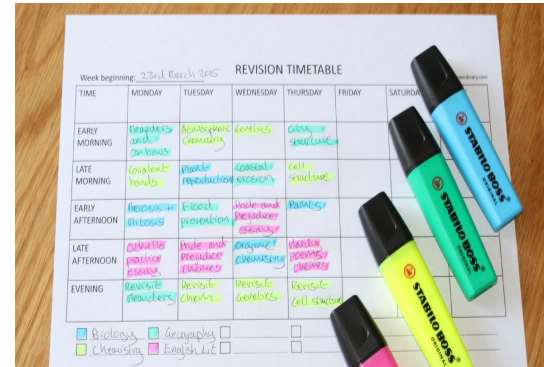 Week beginning: 23rd March 2015 REVISION TIMETABLE
TIME MONDAY TUESDAY WEDNESDAY THURSDAY FRIDAY SATURDA
EARLY MORNING
Meanders and oxbows
Atmospheric Chemistry
Genetics
City structure
LATE MORNING
Covalent bonds
Plant reproduction
Coastal erosion
Cell structure
EARLY AFTERNOON
Meiosis + Mitosis
Flood prevention
Pride and Prejudice essays
Plants
LATE AFTERNOON
Othello practice essays
Pride and Prejudice themes
Organic chemistry
Hardy poems themes
EVENING
Revisit Meanders
Revisit Chem.
Revisit Genetics
Revisit Cell structure
Biology Geography
Chemistry English Lit
STABILO BOSS ORIGINAL
STABILO BOSS ORIGINAL
STABILO BOSS ORIGINAL